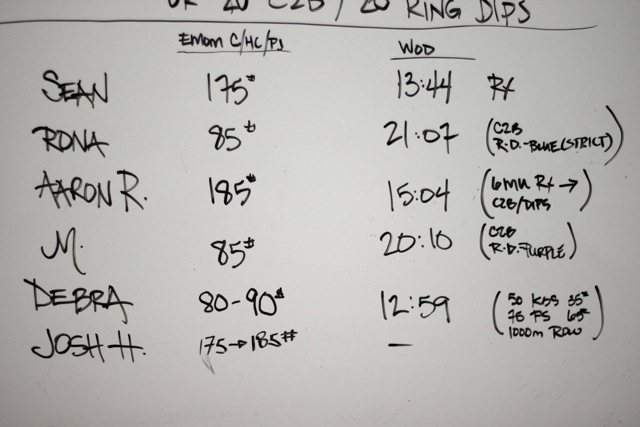 OR 20 C2B / 20 RING DIPS
EMOM C/HC/PJ WOD
SEAN 175# 13:44 RX
RONA 85# 21:07 (C2B
R.D.-BLUE(STRICT))
AARON R. 185# 15:04 (6MU RX →
C2B/DIPS)
M. 85# 20:10 (C2B
R.D. PURPLE)
DEBRA 80-90# 12:59 (50 KBS 35#
75 PS 65#
1000m ROW)
JOSH H. 175→185# —